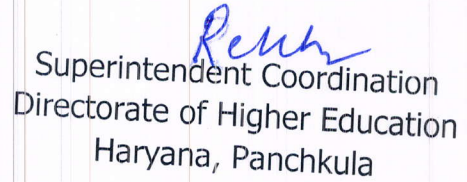 Superintendent Coordination
Directorate of Higher Education
Haryana, Panchkula